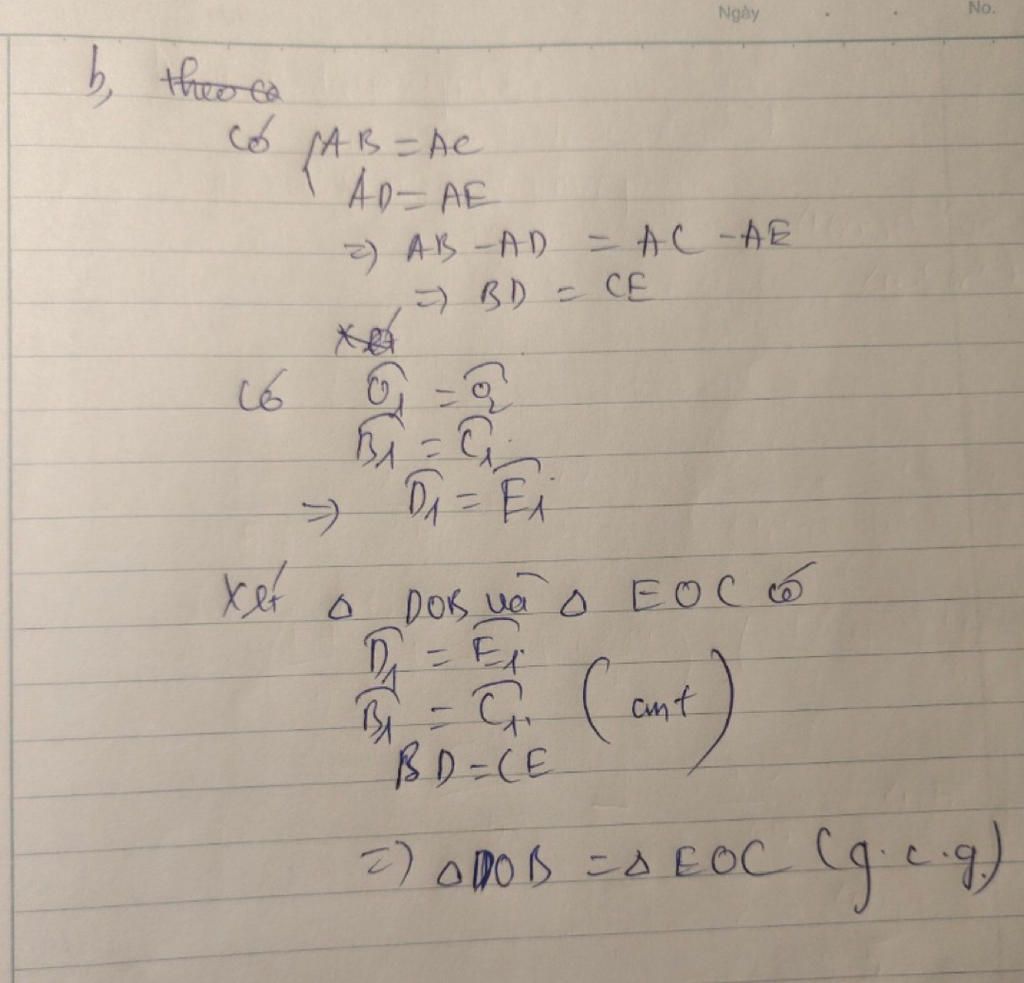 Ngày . . No.
b, theo câ
Có { AB = AC
AD = AE
=) AB - AD = AC - AE
=) BD = CE
Xét
Có Ô1 = Ô2
B̂1 = Ĉ1
=) D̂1 = Ê1
Xét Δ DOB và Δ EOC có
D̂1 = Ê1
B̂1 = Ĉ1 (cmt)
BD = CE
=) Δ DOB = Δ EOC (g.c.g)